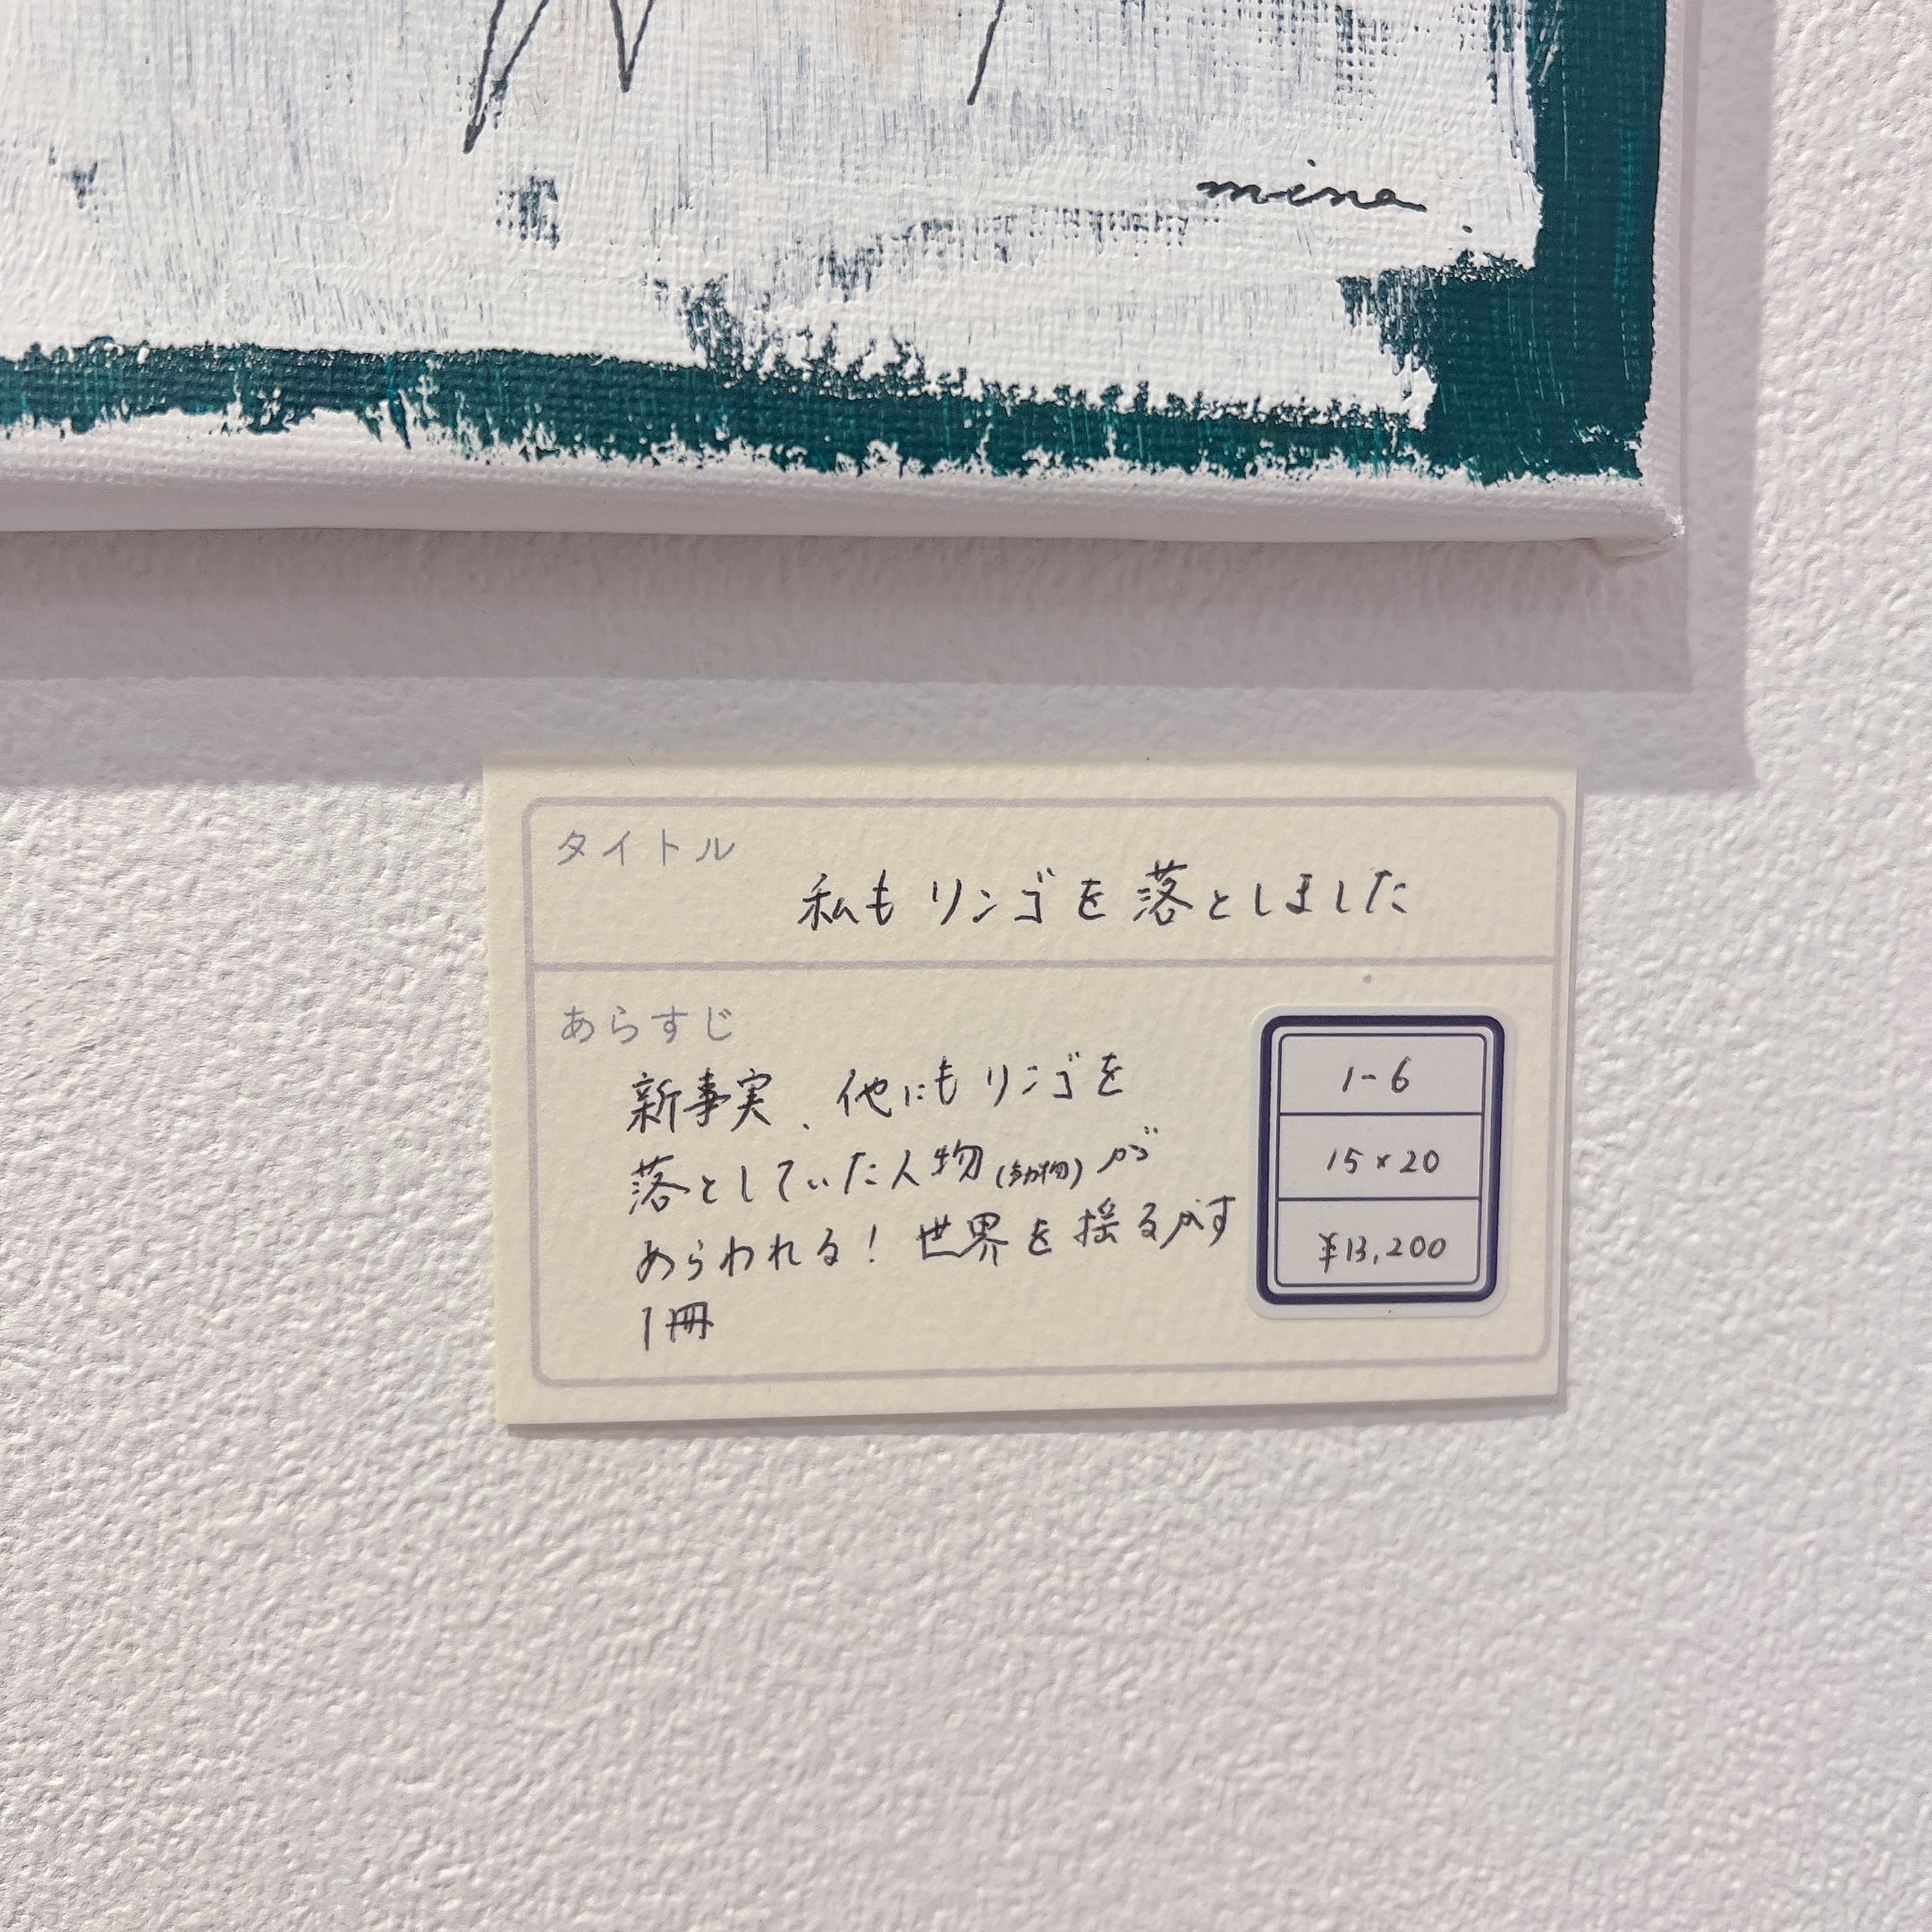 mina
タイトル
私もリンゴを落としました
あらすじ
新事実、他にもリンゴを
落としていた人物(動物)が
あらわれる!世界を揺るがす
1冊
1-6
15×20
¥13,200